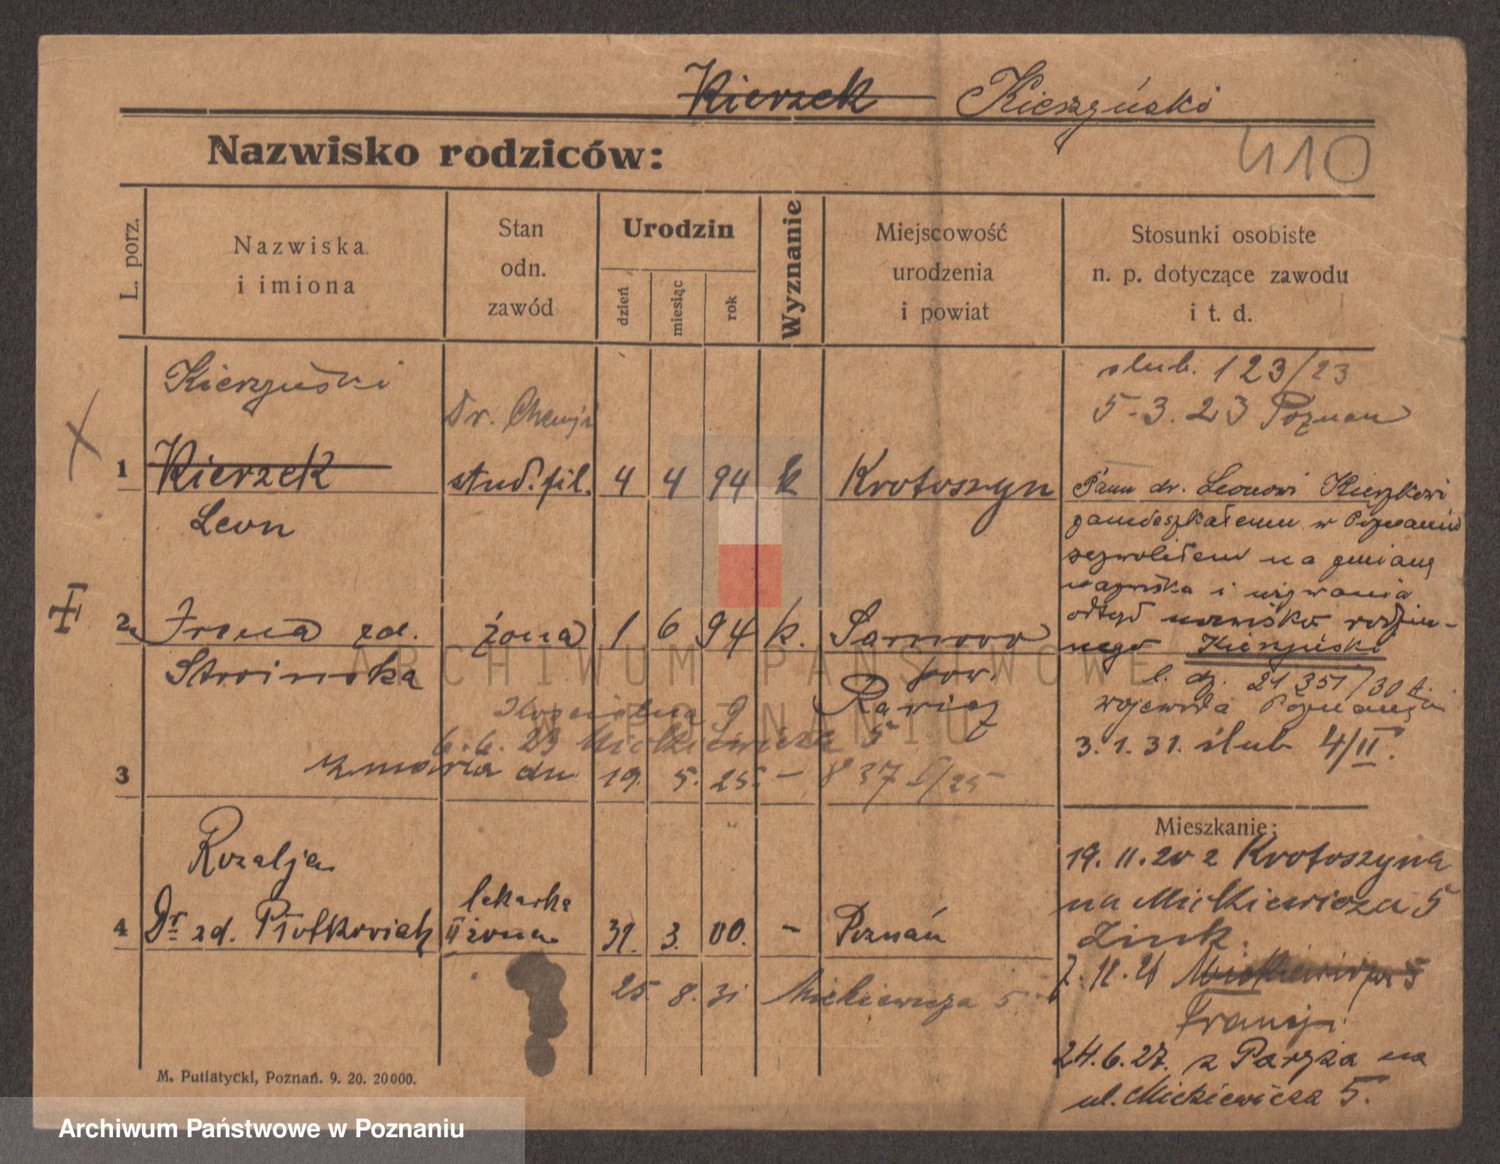 Kierzek Kierzyński
410
Nazwisko rodziców:
L. porz.
Nazwiska
i imiona
Stan
odn.
zawód
Urodzin
dzień
miesiąc
rok
Wyznanie
Miejscowość
urodzenia
i powiat
Stosunki osobiste
n. p. dotyczące zawodu
i t. d.
Kierzyński
Dr. Chemji
1 Kierzek stud. fil. 4 4 94 k Krotoszyn
Leon
2 Irena zd. żona 1 6 94 k. Sarnowo
Stroińska pow.
Rawicz
6.6.23 Mickiewicza 5
3 zmarła dn 19. 5. 25. - 837 I/25
Rozalja
lekarka
4 Dr zd. Piotkowiak II żona 31. 3. 00. - Poznań
25. 8. 31 Mickiewicza 5
ślub. 123/23
5-3.23 Poznań
Panu dr. Leonowi Kierzkowi
zamieszkałemu w Poznaniu
zezwoliłem na zmianę
nazwiska i używania
odtąd nazwisko rodzin-
nego Kierzyński
l. dz. 21351/30
wojewoda Poznański
3.1.31. ślub 4/II.
Mieszkanie:
19.11.20 z Krotoszyna
na Mickiewicza 5
Zink.
7.11.21 Mickiewicza 5
Francji
24.6.27. z Paryża na
ul. Mickiewicza 5.
M. Putiatycki, Poznań. 9. 20. 20000.
ARCHIWUM PAŃSTWOWE
W POZNANIU
Archiwum Państwowe w Poznaniu